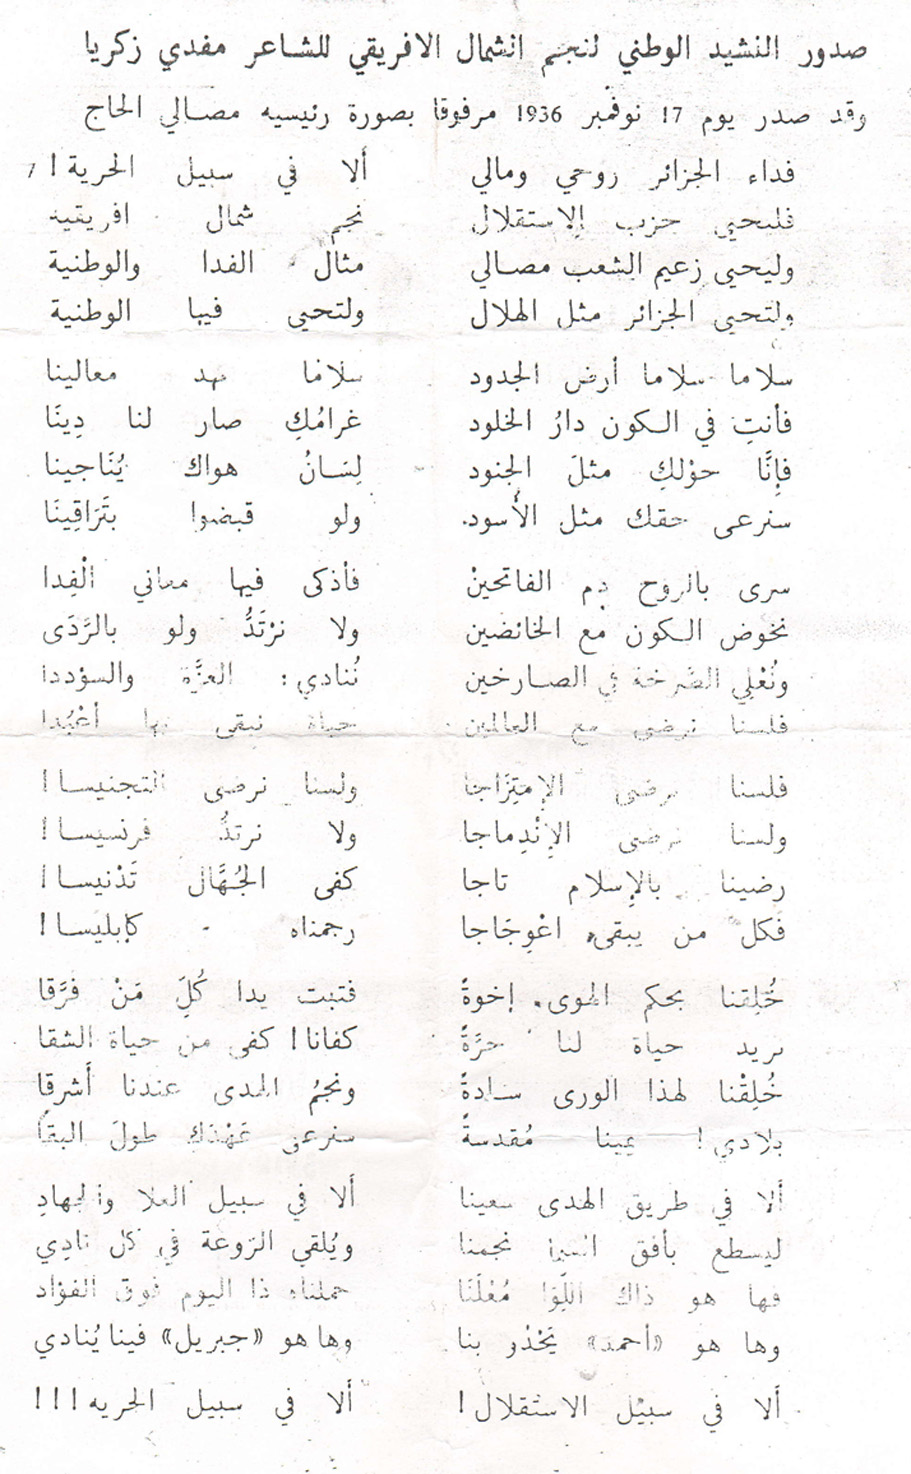 صدور النشيد الوطني لنجم الشمال الافريقي للشاعر مفدي زكريا
وقد صدر يوم 17 نوفمبر 1936 مرفوقا بصورة رئيسيه مصالي الحاج
فداء الجزائر روحي ومالي ألا في سبيل الحرية!
فليحيى حزب الإستقلال نجم شمال افريقية
وليحيى زعيم الشعب مصالي مثال الفدا والوطنية
ولتحيى الجزائر مثل الهلال ولتحيى فيها الوطنية
سلاما سلاما أرض الجدود سلاما مهد معالينا
فأنتِ في الكون دارُ الخلود غرامُكِ صار لنا دِينَا
فإنَّا حوْلكِ مثلَ الجنود لِسَانُ هواك يُنَاجينا
سنرعى حقك مثل الأُسود. ولو قبضوا بتَرَاقِينَا
سرى بالروح دم الفاتحينْ فأذكى فيها معاني الْفِدا
نخوض الكون مع الخائضين ولا نرْتَدُّ ولو بالرَّدَى
ونُعْلِي الصَّرخة في الصارخين نُنادي: العزَّة والسؤددا
فلسنا نرضى مع العالمين حياة نبقى بها أعْبُدا
فلسنا نرضى الإمتِزَاجا ولسنا نرضى التجنيسا!
ولسنا نرضى الإنْدِماجا ولا نرتدُّ فرنسيسا!
رضينا بالإسلام تاجا كفى الجُهَّال تَدْنيسا!
فكل من يبقى اعْوِجَاجا رجمناه كإبليسا!
خُلِقنا بحكم الهوى. إخوةً فتبت يدا كُلِّ مَنْ فرَّقا
نريد حياة لنا حرَّةً كفانا! كفى من حياة الشقا
خُلِقْنا لهذا الورى سادةً ونجمُ الهدى عندنا أَشرقا
بلادي! يمينا مُقدسةً سنرعى عَهْدَكِ طولَ البقا
ألا في طريق الهدى سعينا ألا في سبيل العلا والجهادِ
ليسطع بأفق السما نجمنا ويُلقي الروعة في كل نادِي
فها هو ذاك اللِّوَا مُعْلَنَا حملناه ذا اليوم فوق الفؤاد
وها هو «أحمد» يَحْدُو بنا وها هو «جبريل» فينا يُنادي
ألا في سبيْل الاستقلال! ألا في سبيل الحريه!!!